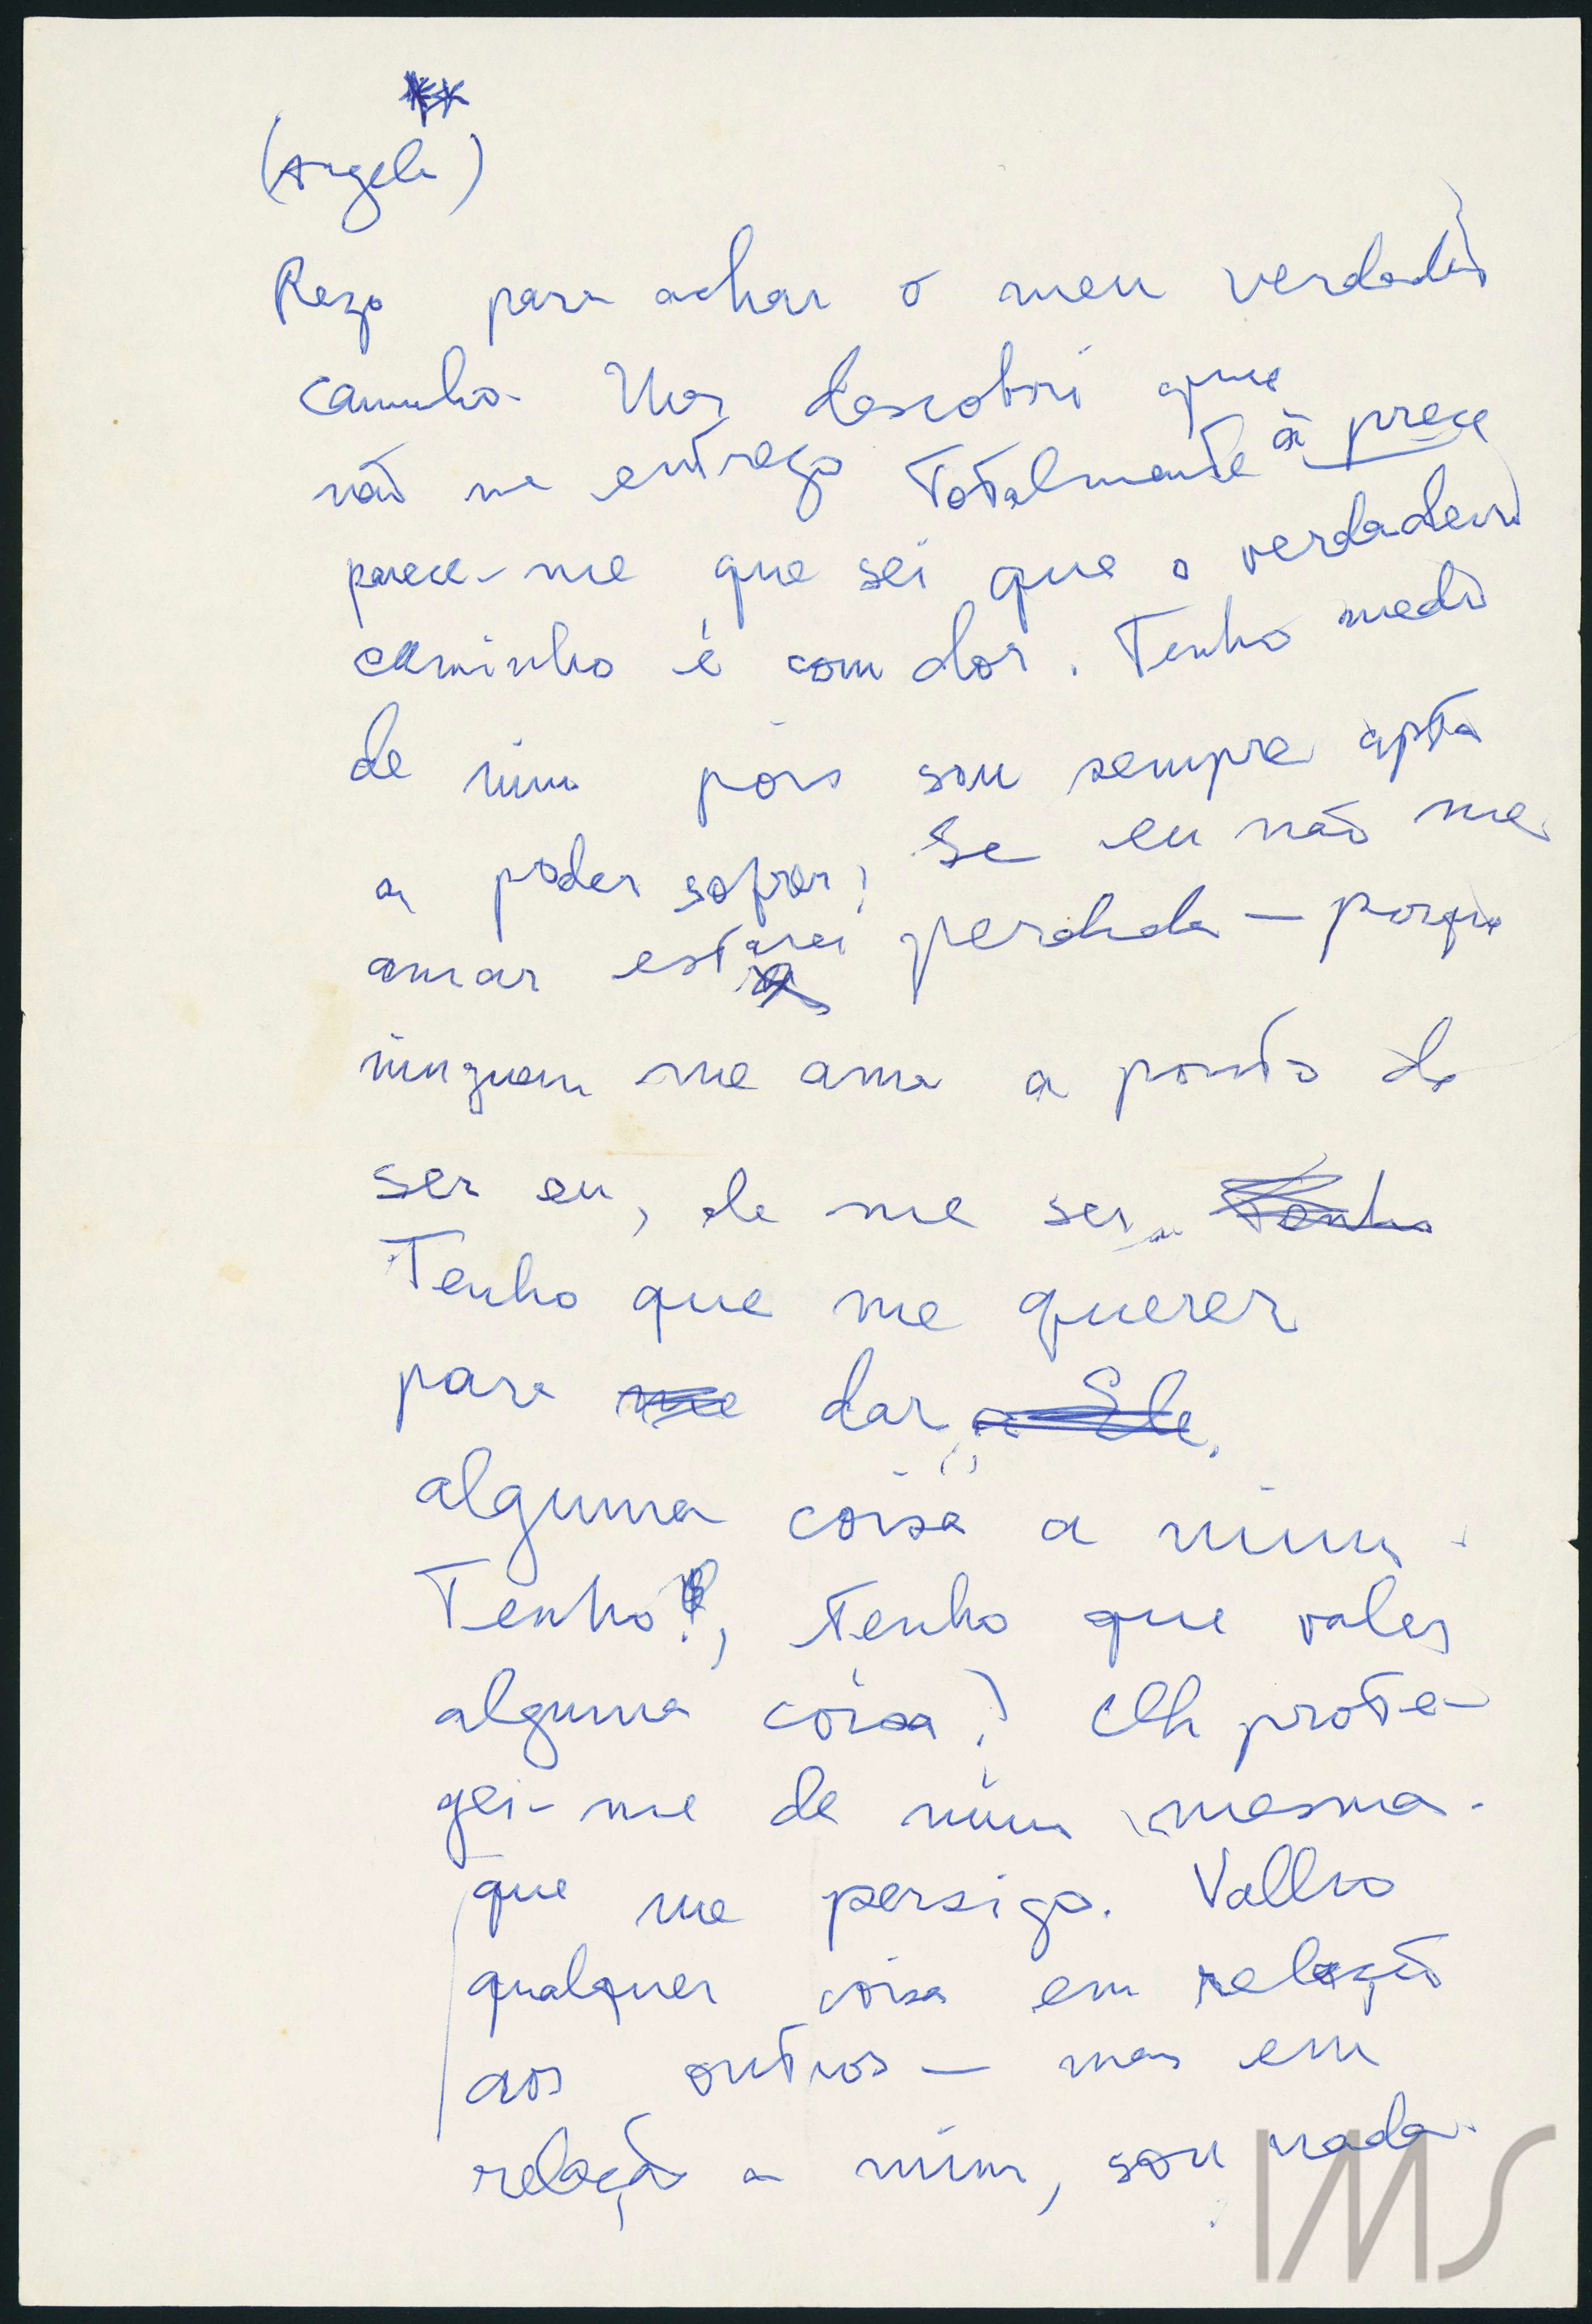 **
(Angela)
Rezo para achar o meu verdadeiro
caminho. Mas descobri que
não me entrego totalmente à prece
parece-me que sei que o verdadeiro
caminho é com dor. Tenho medo
de mim pois sou sempre apta
a poder sofrer. Se eu não me
amar estarei perdida — porque
ninguem me ama a ponto de
ser eu, de me ser. Tenho
Tenho que me querer
para me dar a Ele
alguma coisa a mim.
Tenho?, tenho que valer
alguma coisa? Oh prote-
gei-me de mim mesma.
que me persigo. Valho
qualquer coisa em relação
aos outros — mas em
relação a mim, sou nada.
IMS